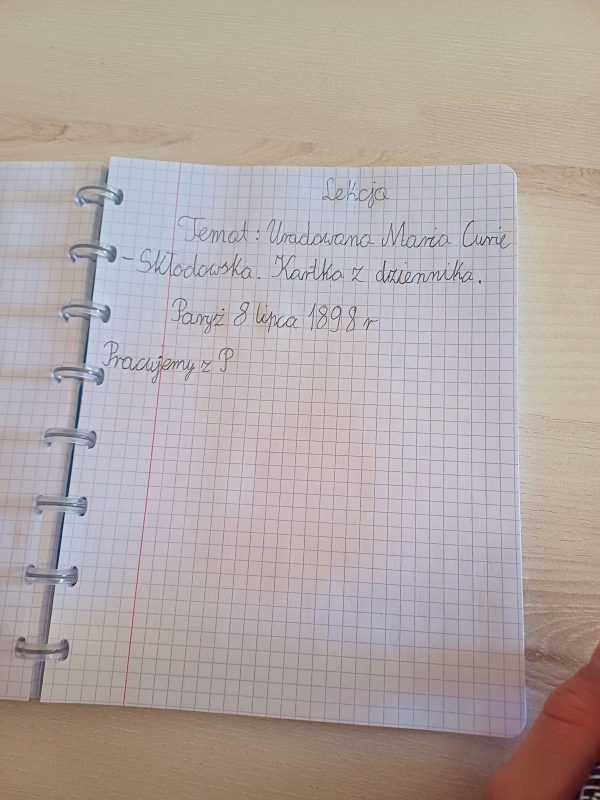 Lekcja
Temat: Uradowana Maria Curie
- Skłodowska. Kartka z dziennika.
Paryż 8 lipca 1898 r
Pracujemy z P